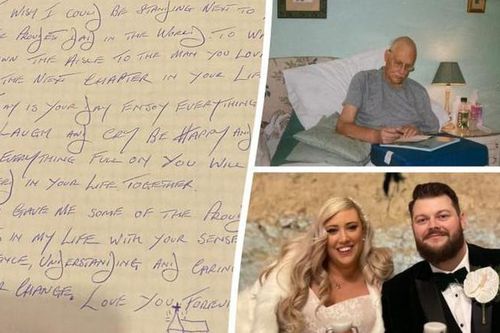 WISH I COULD BE STANDING NEXT TO
PROUDEST DAY IN THE WORLD. TO W
WN THE AISLE TO THE MAN YOU LOVE
THE NEXT CHAPTER IN YOUR LIFE
AY IS YOUR DAY ENJOY EVERYTHING
LAUGH AND CRY BE HAPPY AND
EVERYTHING FULL ON YOU WILL
IN YOUR LIFE TOGETHER.
GAVE ME SOME OF THE PROU
IN MY LIFE WITH YOUR SENSE
ENCE, UNDERSTANDING AND CARING
CHANGE. LOVE YOU FOREVE